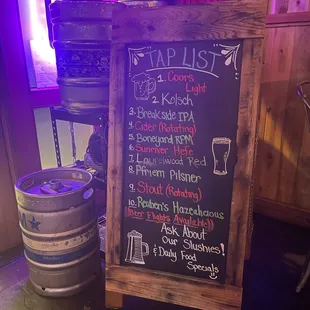 TAP LIST
1. Coors
Light
2. Kolsch
3. Breakside IPA
4. Cider (Rotating)
5. Boneyard RPM
6. Sunriver Hefe
7. Laurelwood Red
8. Pfriem Pilsner
9. Stout (Rotating)
10. Reuben's Hazealicious
(Beer Flights Available!)
Ask About
Our Slushies!
& Daily Food
Specials